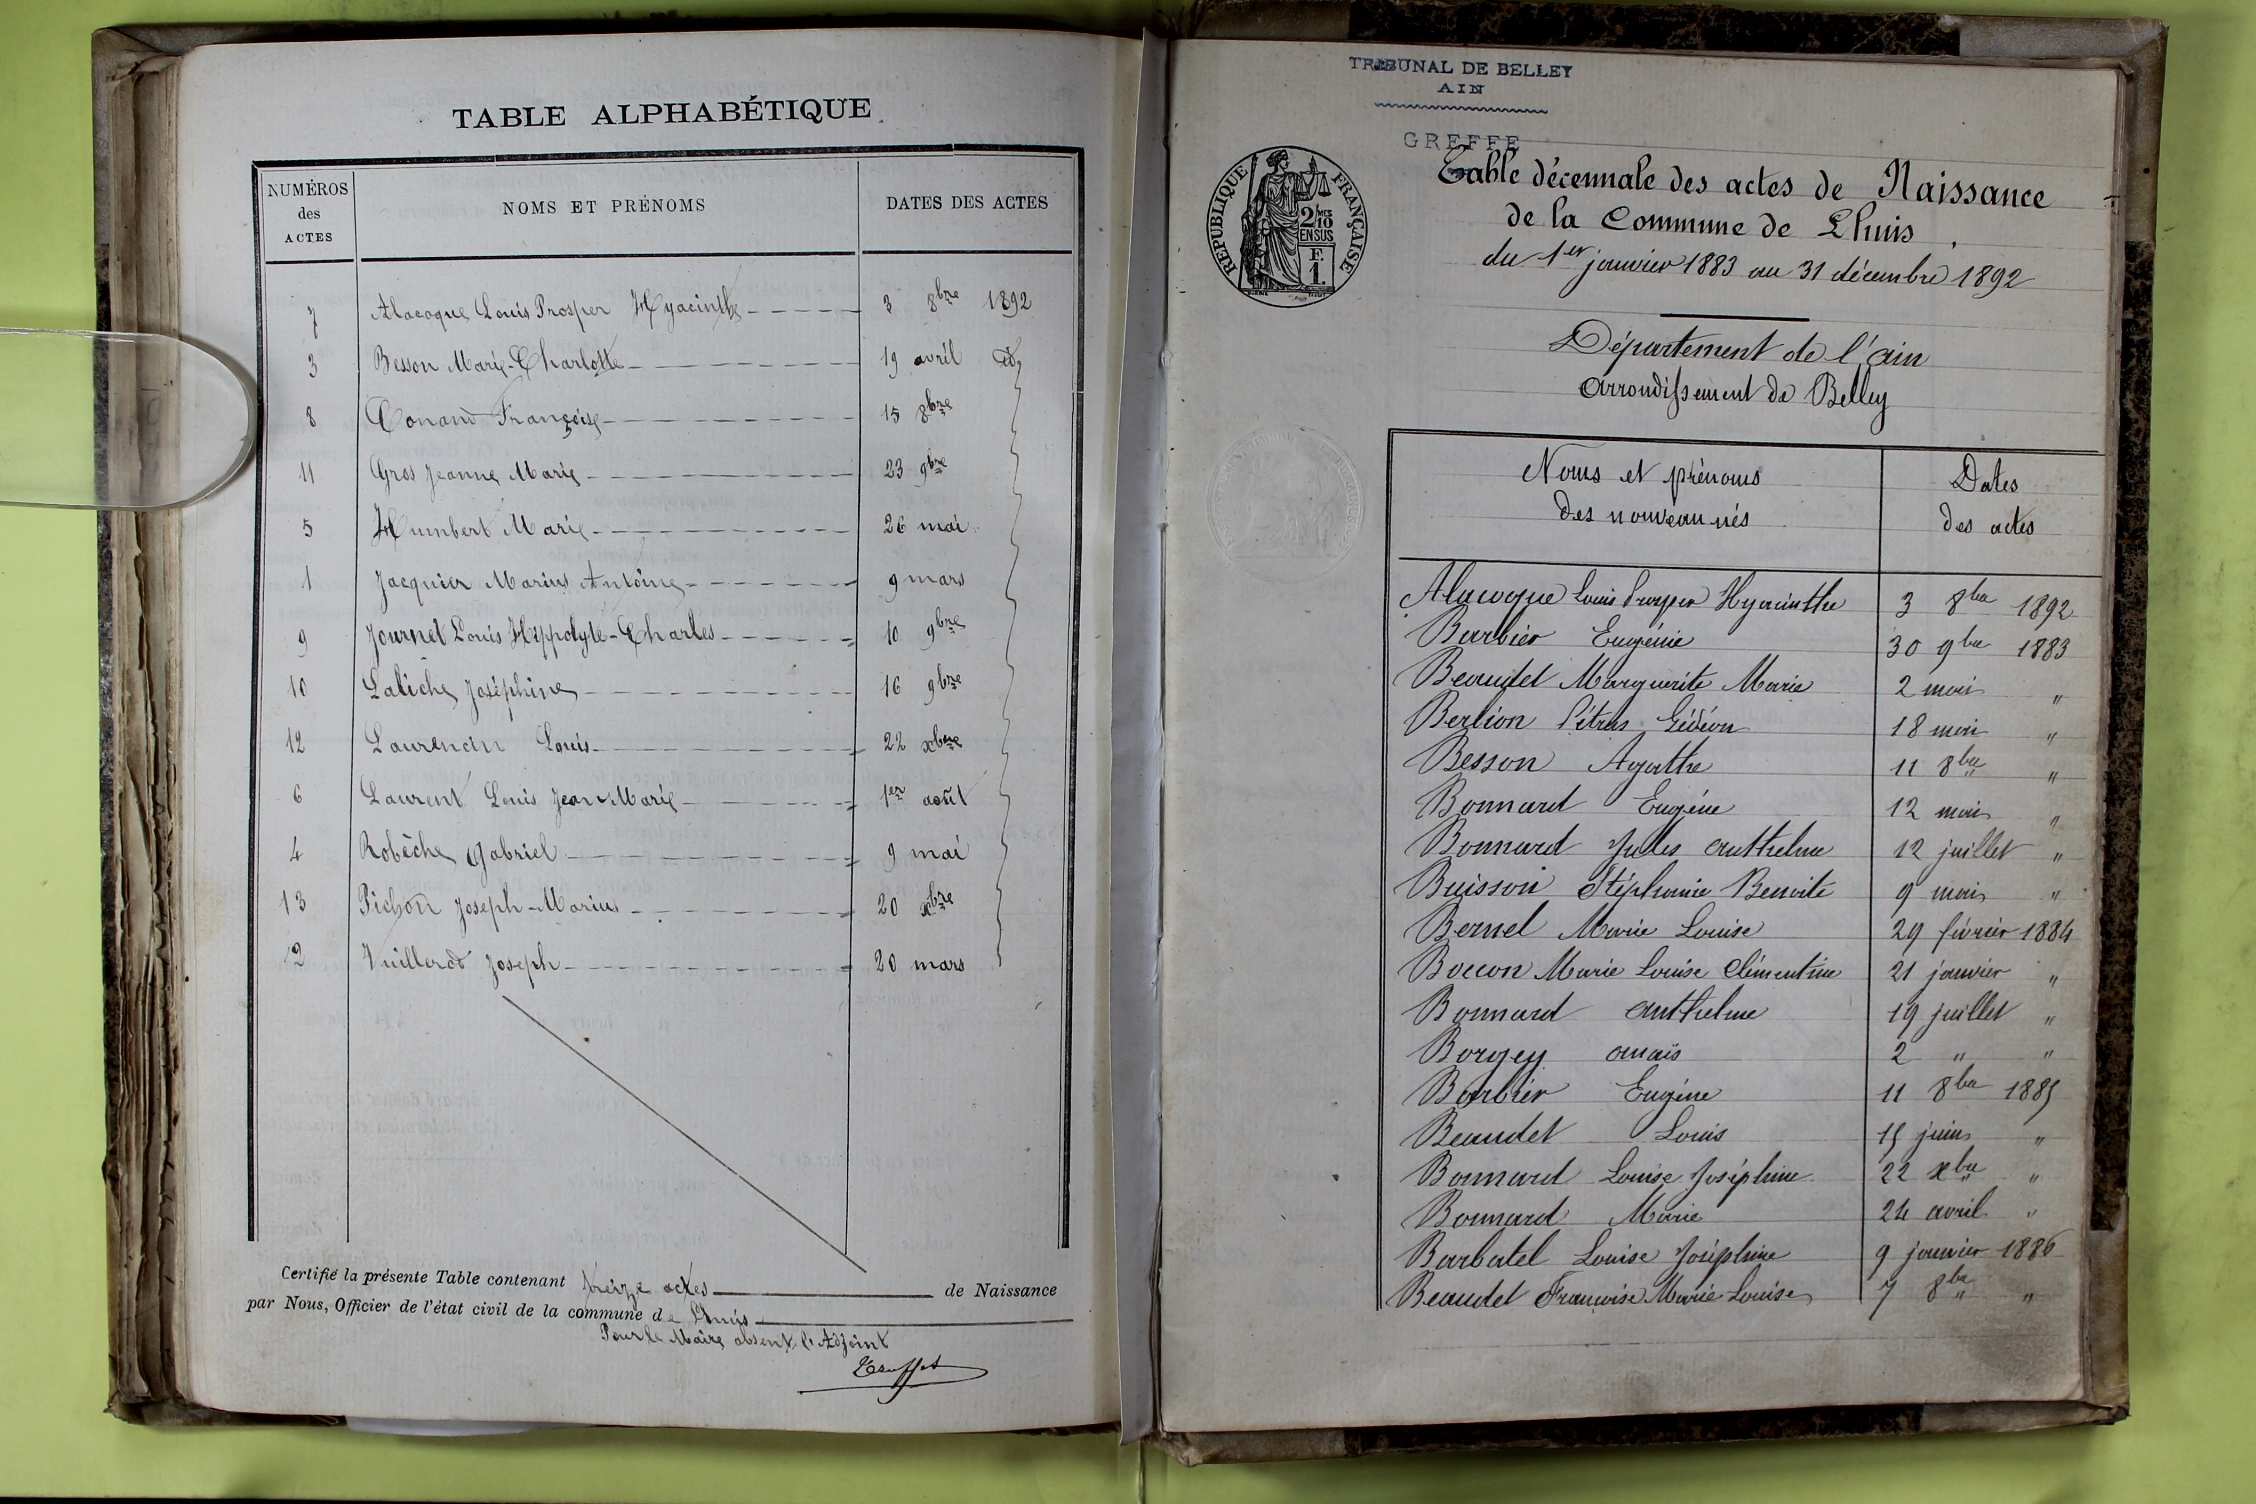 TABLE ALPHABÉTIQUE
NUMÉROS des ACTES
NOMS ET PRÉNOMS
DATES DES ACTES
7 Alacoque Louis Prosper Hyacinthe 3 8bre 1892
3 Besson Marie-Charlotte 19 avril id
8 Conand Françoise 15 8bre
11 Gros Jeanne Marie 23 9bre
5 Humbert Marie 26 mai
1 Jacquier Marius Antoine 9 mars
9 Journet Louis Hippolyte-Charles 10 9bre
10 Labiche Joséphine 16 9bre
12 Laurencin Louis 22 xbre
6 Laurent Louis Jean Marie 1er août
4 Robèche Gabriel 9 mai
13 Pichon Joseph-Marius 20 xbre
2 Vuillerod Joseph 20 mars
Certifié la présente Table contenant treize actes de Naissance
par Nous, Officier de l'état civil de la commune de Lhuis
Pour le Maire absent l'Adjoint
TRIBUNAL DE BELLEY
AIN
GREFFE
RÉPUBLIQUE FRANÇAISE
2/10 MES
EN SUS
F.
1.
Table décennale des actes de Naissance
de la Commune de Lhuis
du 1er janvier 1883 au 31 décembre 1892
Département de l'ain
arrondissement de Belley
Noms et prénoms
des nouveau nés
Dates
des actes
Alacoque Louis Prosper Hyacinthe 3 8bre 1892
Barbier Eugénie 30 9bre 1883
Beaudet Marguerite Marie 2 mai "
Berlion Pétrus Gédéon 18 mai "
Besson Agathe 11 8bre "
Bonnard Eugène 12 mai "
Bonnard Jules anthelme 12 juillet "
Buisson Stéphanie Benoite 9 mai "
Bernel Marie Louise 29 février 1884
Boccon Marie Louise Clémentine 21 janvier "
Bonnard anthelme 19 juillet "
Borgey anaïs 2 " "
Barbier Eugène 11 8bre 1885
Beaudet Louis 15 juin "
Bonnard Louise Joséphine 22 xbre "
Bonnard Marie 24 avril "
Barbatel Louise Joséphine 9 janvier 1886
Beaudet Françoise Marie Louise 7 8bre "